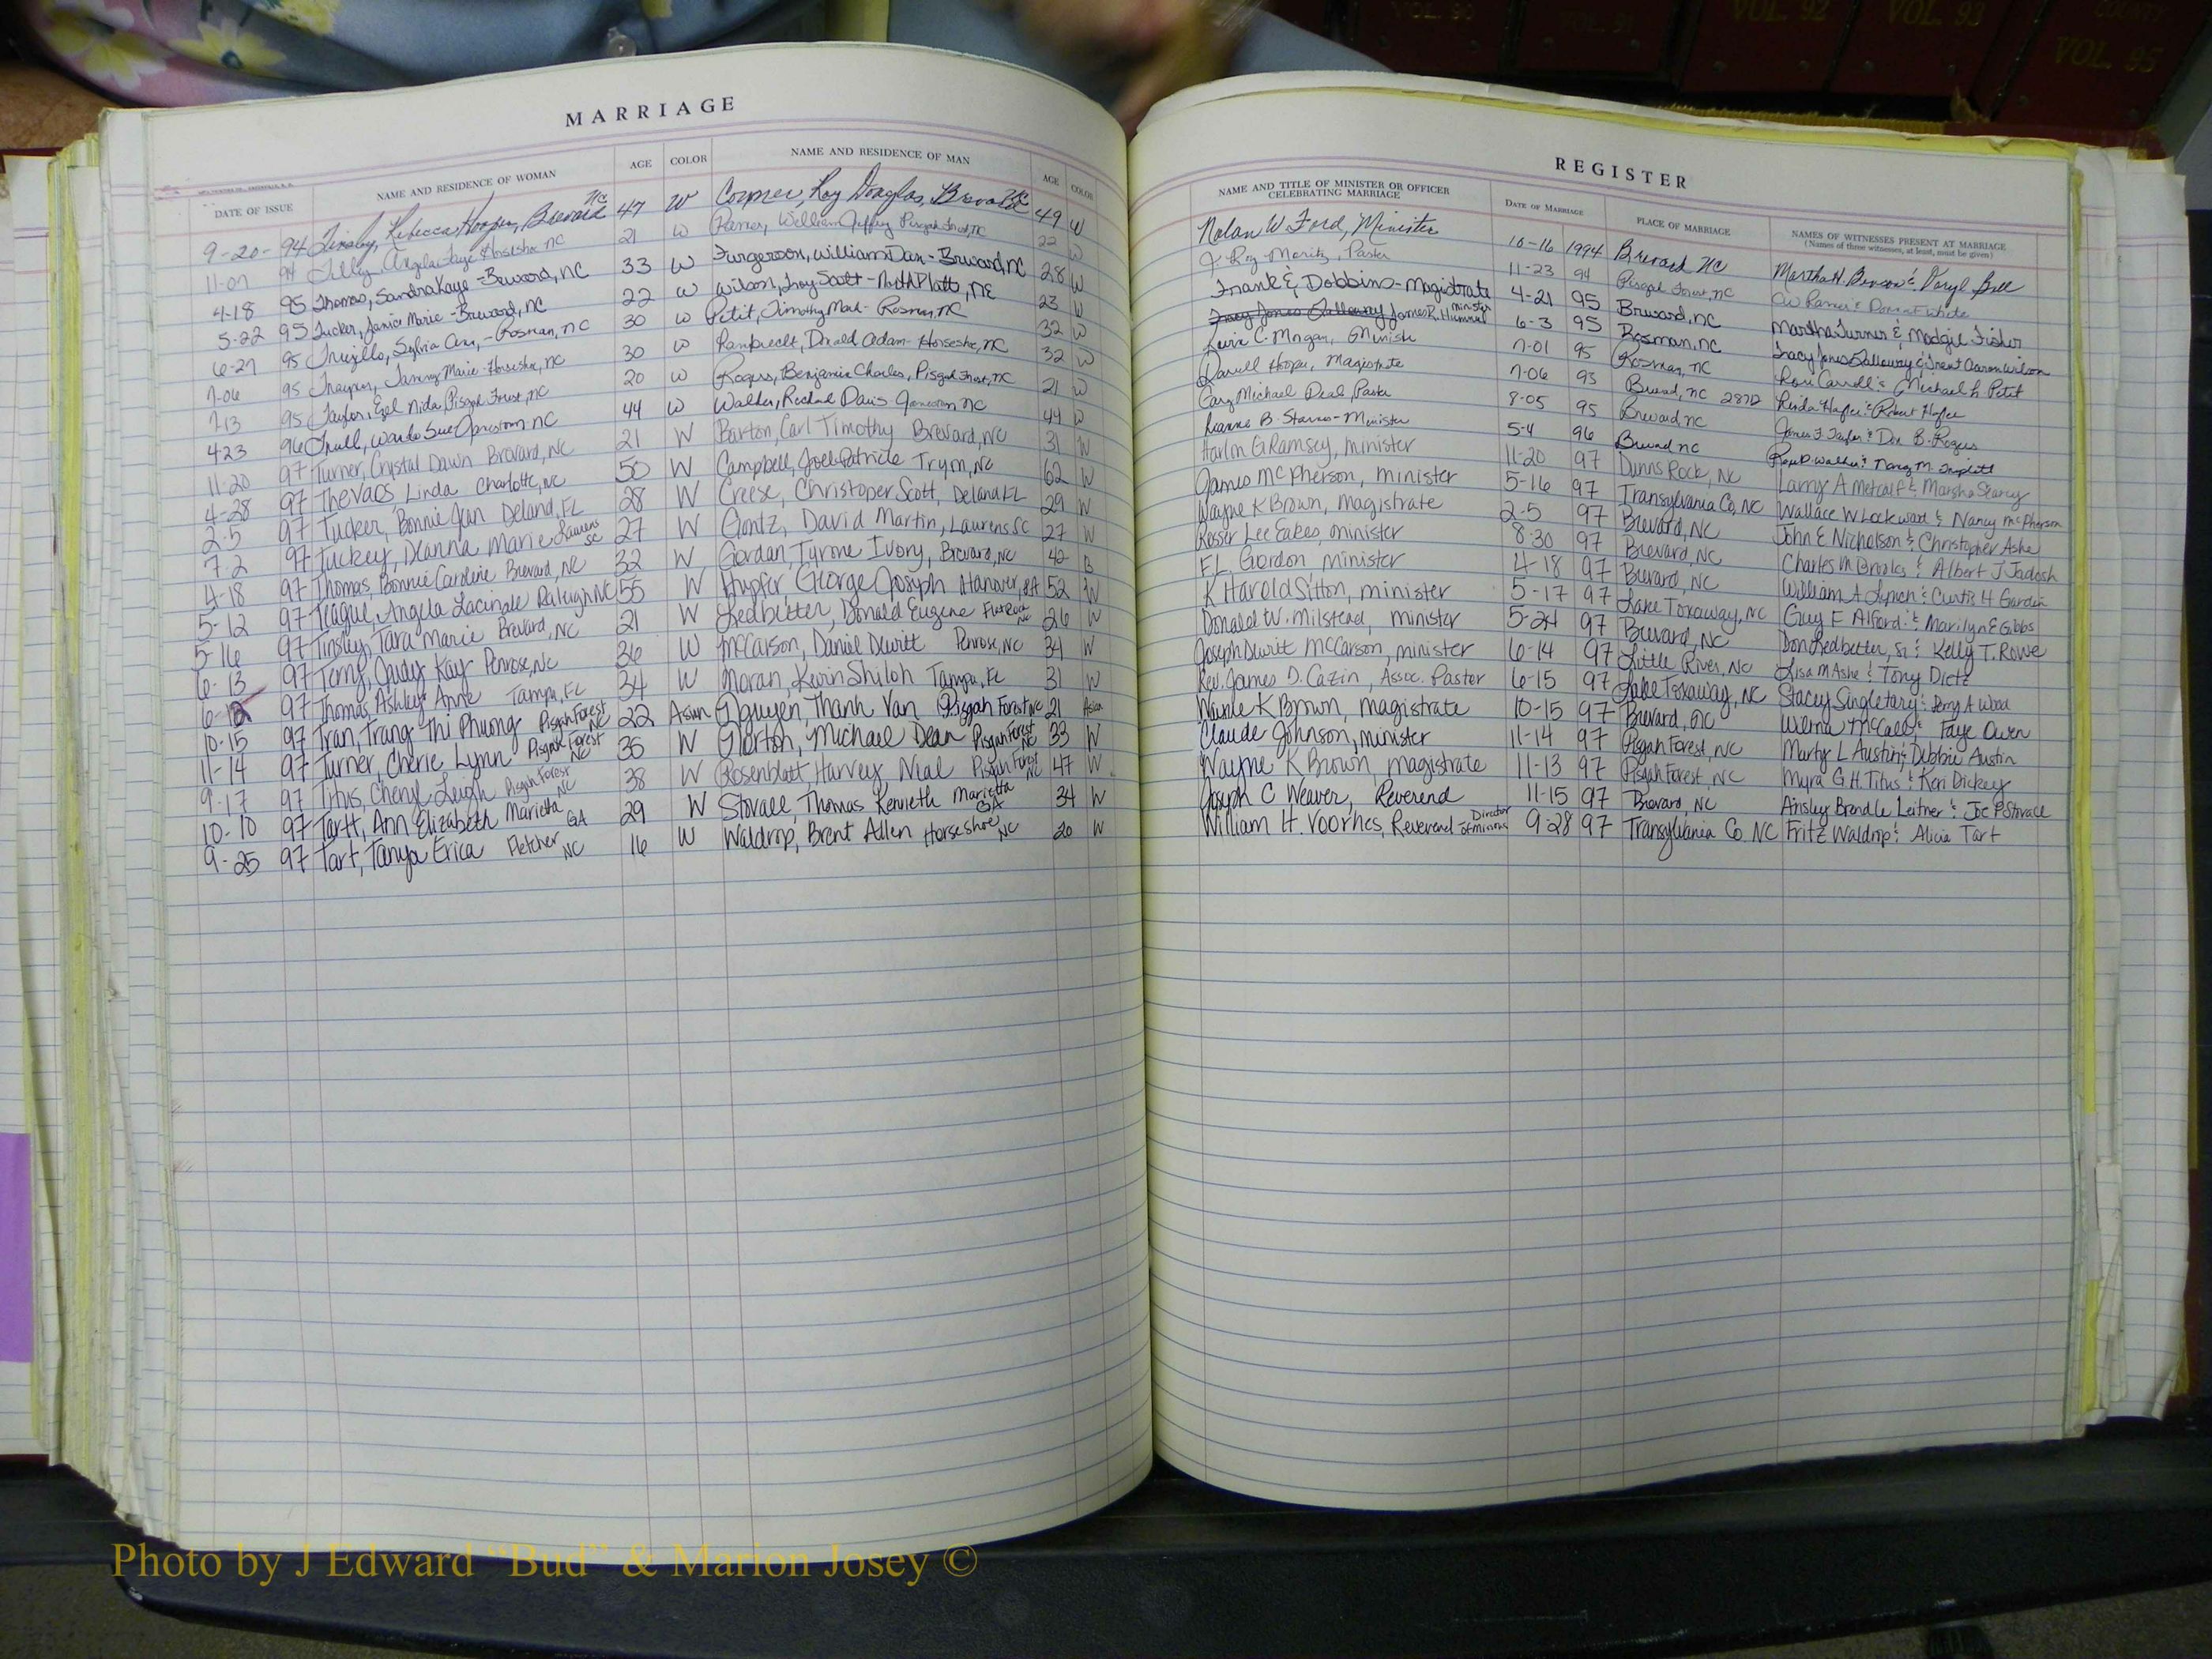 VOL. 90
VOL. 91
VOL. 92
VOL. 93
COUNTY
VOL. 95
MARRIAGE
DATE OF ISSUE
NAME AND RESIDENCE OF WOMAN
AGE
COLOR
NAME AND RESIDENCE OF MAN
AGE
COLOR
9-20-94 Tinsley, Rebecca Hooper, Brevard NC 47 W Conner, Roy Douglas, Brevard NC 49 W
11-07 94 Tilley, Angela Faye Horseshoe NC 21 W William Jeffrey Pisgah Forest, NC 22 W
4-18 95 Thomas, Sandra Kaye - Brevard, NC 33 W Furgerson, William Dan - Brevard, NC 28 W
5-22 95 Tucker, Janice Marie - Brevard, NC 22 W Wilson, Troy Scott - North Platte, NE 23 W
6-27 95 Trujillo, Sylvia Ann, - Rosman, NC 30 W Petit, Timothy Mark - Rosman, NC 32 W
7-06 95 Traynor, Tammy Marie - Horseshoe, NC 30 W Donald Adam - Horseshoe, NC 32 W
7-13 95 Taylor, Nida, Pisgah Forest, NC 20 W Rogers, Benjamin Charles, Pisgah Forest, NC 21 W
4 23 96 Trull, Wanda Sue NC 44 W Walker, Davis NC 44 W
11-20 97 Turner, Crystal Dawn Brevard, NC 21 W Barton, Carl Timothy Brevard, NC 31 W
4-28 97 Thevaos Linda Charlotte, NC 50 W Campbell, Joel Patrick Tryon, NC 62 W
2-5 97 Tucker, Bonnie Jean Deland, FL 28 W Creese, Christoper Scott, Deland FL 29 W
7-2 97 Tuckey, Deanna Marie Laurens SC 27 W Gontz, David Martin, Laurens SC 27 W
4-18 97 Thomas, Bonnie Caroline Brevard, NC 32 W Gordan, Tyrone Ivory, Brevard, NC 42 B
5-12 97 Teague, Angela Raleigh NC 55 W Hupfer, George Joseph Hanover, PA 52 W
5-16 97 Tinsley, Tara Marie Brevard, NC 21 W Ledbetter, Donald Eugene Flat Rock NC 26 W
6-13 97 Terry, Judy Kay Penrose, NC 36 W McCarson, Daniel Dewitt Penrose, NC 34 W
6-12 97 Thomas, Ashley Anne Tampa, FL 34 W Moran, Kevin Shiloh Tampa, FL 31 W
10-15 97 Tran, Trang Thi Phuong Pisgah Forest NC 22 Asian Nguyen, Thanh Van Pisgah Forest NC 21 Asian
11-14 97 Turner, Cherie Lynn Pisgah Forest NC 35 W Michael Dean Pisgah Forest NC 33 W
9-17 97 Titus, Cheryl Leigh Pisgah Forest NC 38 W Rosenblatt, Harvey Neal Pisgah Forest NC 47 W
10-10 97 Tartt, Ann Elizabeth Marietta GA 29 W Stovall, Thomas Kenneth Marietta GA 34 W
9-25 97 Tart, Tanya Erica Fletcher NC 16 W Waldrop, Brent Allen Horseshoe NC 20 W
REGISTER
NAME AND TITLE OF MINISTER OR OFFICER CELEBRATING MARRIAGE
DATE OF MARRIAGE
PLACE OF MARRIAGE
NAMES OF WITNESSES PRESENT AT MARRIAGE
(Names of three witnesses, at least, must be given)
Nolan W. Ford, Minister 10-16 1994 Brevard NC Martha H. & Daryl
J. Roy Moritz, Pastor 11-23 94 Pisgah Forest, NC & White
Frank E. Dobbins - Magistrate 4-21 95 Brevard, NC Martha Turner & Madgie Fisher
Tracy Jones Galloway James R. minister 6-3 95 Rosman, NC Tracy Jones Galloway & Trent Aaron Wilson
C. Morgan, 7-01 95 Rosman, NC Lori Carroll & Michael L. Petit
Darrell Hooper, Magistrate 7-06 95 Brevard, NC 28712 Linda & Robert
Gary Michael Deal, Pastor 8-05 95 Brevard, NC James F. Taylor & B. Rogers
B. Minister 5-4 96 Brevard NC Walker & Nancy M.
Harlon G Ramsey, minister 11-20 97 Dunns Rock, NC Larry A Metcalf & Marsha Starcy
James McPherson, minister 5-16 97 Transylvania Co, NC Wallace W Lockwood & Nancy McPherson
Wayne K Brown, magistrate 2-5 97 Brevard, NC John E Nicholson & Christopher Ashe
Lee Eakes, minister 8-30 97 Brevard, NC Charles M Brooks & Albert J Jadosh
F.L. Gordon minister 4-18 97 Brevard, NC William A Lynch & Curtis H Gardin
K Harold Sitton, minister 5-17 97 Lake Toxaway, NC Guy F Alford & Marilyn E Gibbs
Donald W. Milstead, minister 5-24 97 Brevard, NC Don Ledbetter, Sr & Kelly T. Rowe
Joseph Dewitt McCarson, minister 6-14 97 Little River, NC Lisa M Ashe & Tony Dietz
Rev. James D. Cazin, Assoc. Pastor 6-15 97 Lake Toxaway, NC Stacey Singletary & A Wood
Wayne K Brown, magistrate 10-15 97 Brevard, NC Wilma McCall & Faye Owen
Claude Johnson, minister 11-14 97 Pisgah Forest, NC Marty L Austin & Debbie Austin
Wayne K Brown, magistrate 11-13 97 Pisgah Forest, NC Myra G.H. Titus & Keri Dickey
Joseph C Weaver, Reverend 11-15 97 Brevard, NC Ansley Brendle Leitner & Joe P Stovall
William H. Voorhes, Reverend Director of Missions 9-28 97 Transylvania Co. NC Fritz Waldrop & Alicia Tart
Photo by J Edward “Bud” & Marion Josey ©